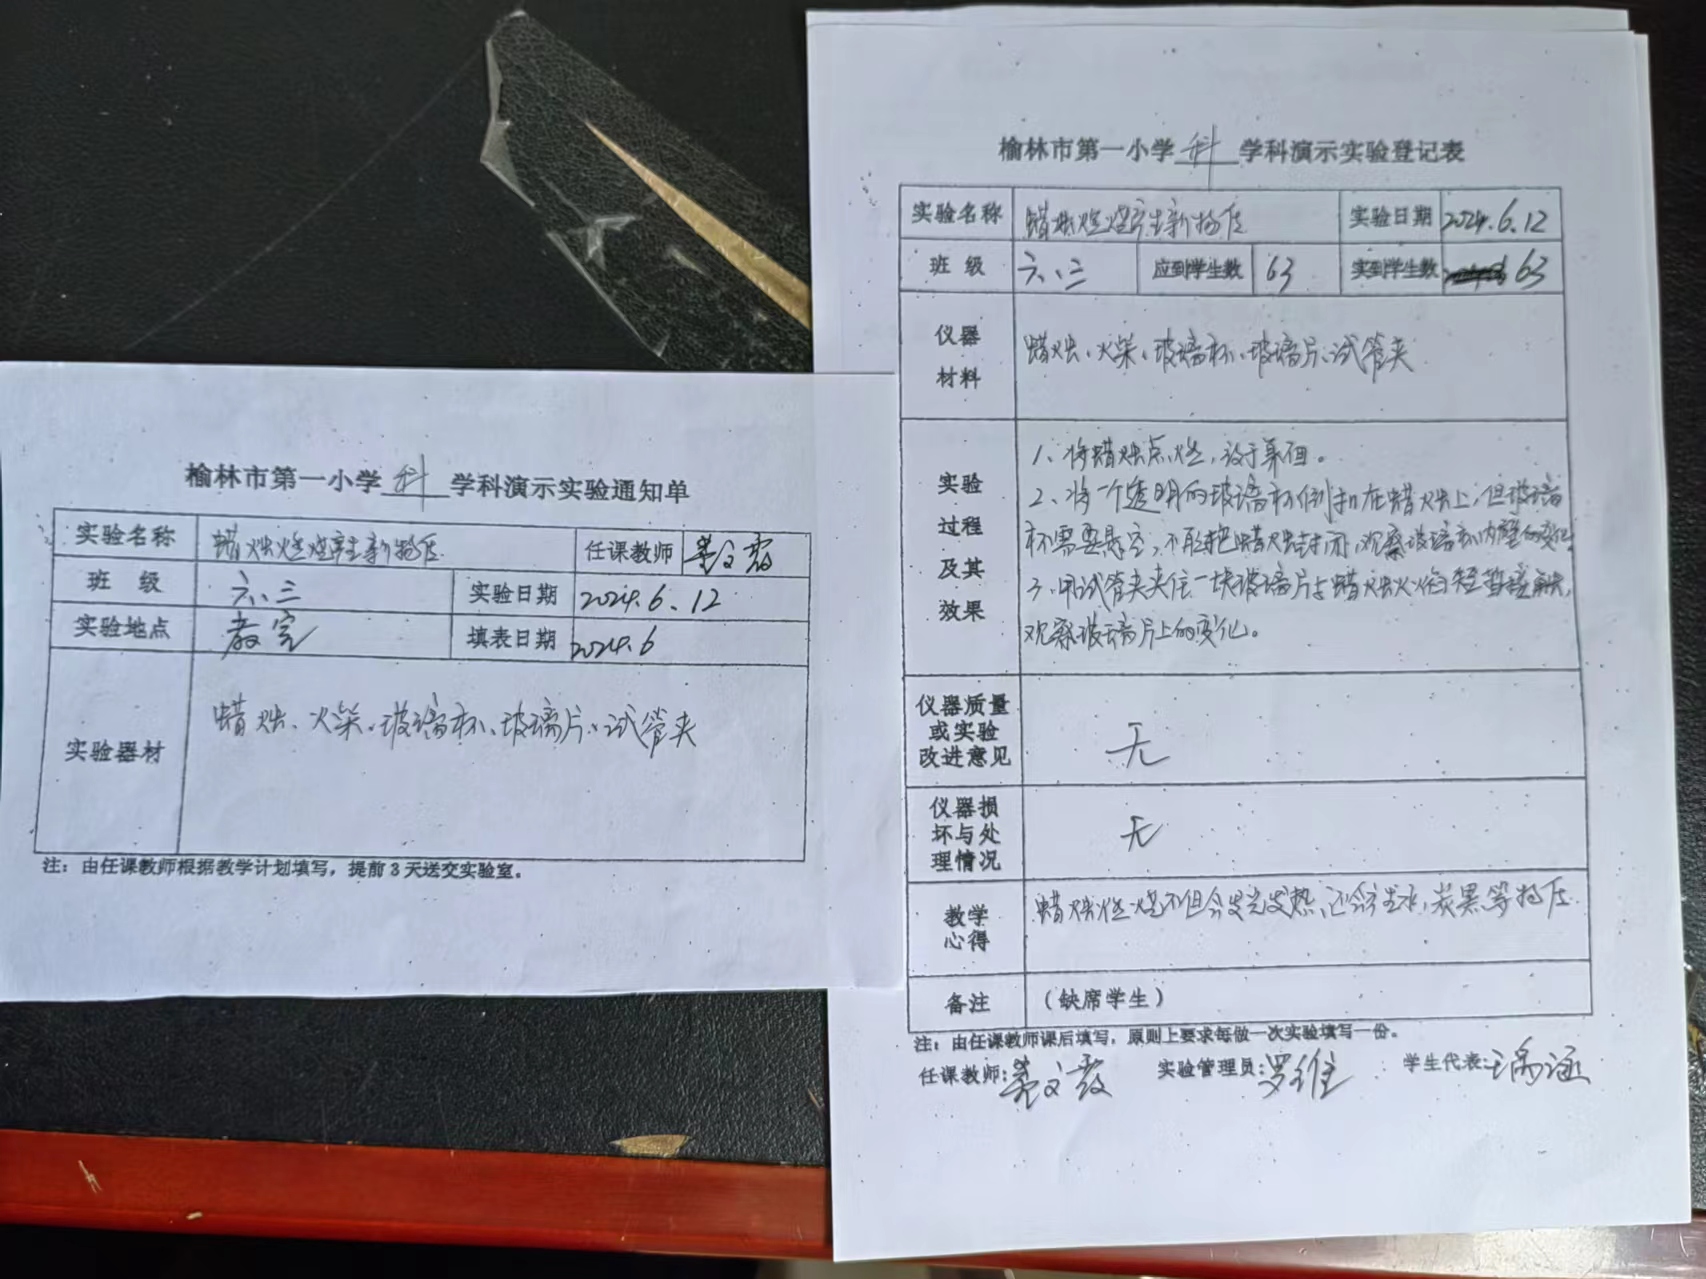 榆林市第一小学 科 学科演示实验通知单
实验名称 蜡烛燃烧产生新物质 任课教师
班 级 六、三 实验日期 2024.6.12
实验地点 教室 填表日期 2024.6
实验器材 蜡烛、火柴、玻璃杯、玻璃片、试管夹
注：由任课教师根据教学计划填写，提前3天送交实验室。
榆林市第一小学 科 学科演示实验登记表
实验名称 蜡烛燃烧产生新物质 实验日期 2024.6.12
班 级 六、三 应到学生数 63 实到学生数 63
仪器
材料
蜡烛、火柴、玻璃杯、玻璃片、试管夹
实验
过程
及其
效果
1、将蜡烛点燃，
2、将一个透明的玻璃杯倒扣在蜡烛上，但玻璃
杯需要悬空，不能把蜡烛封闭，观察玻璃杯内壁的变化。
3、用试管夹夹住一块玻璃片与蜡烛火焰短暂接触，
观察玻璃片上的变化。
仪器质量
或实验
改进意见
无
仪器损
坏与处
理情况
无
教学
心得
蜡烛燃烧不但会发光发热，还会产生水，炭黑等物质
备注 （缺席学生）
注：由任课教师课后填写，原则上要求每做一次实验填写一份。
任课教师： 实验管理员：罗维 学生代表：